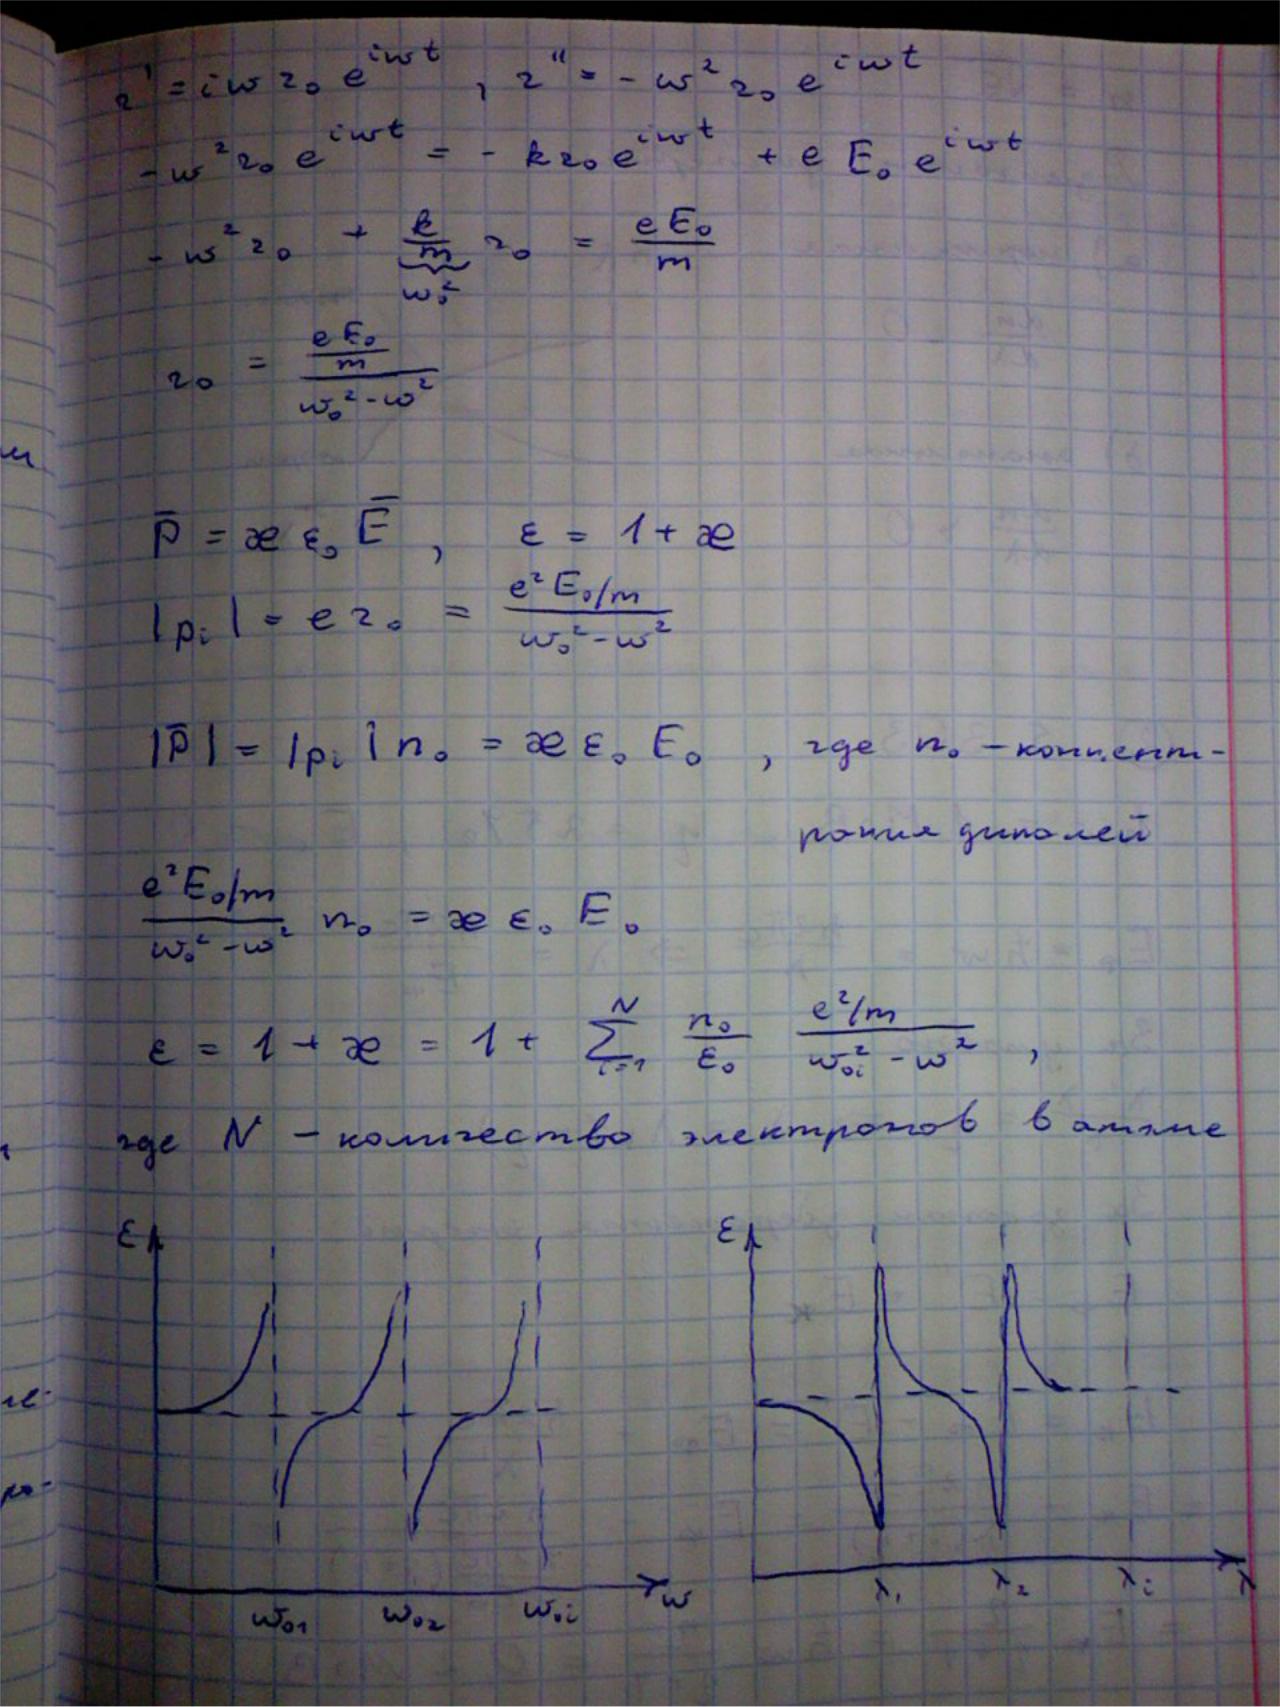 r' = iω r₀ e^{iωt} , r'' = - ω² r₀ e^{iωt}
- ω² r₀ e^{iωt} = - k r₀ e^{iωt} + e E₀ e^{iωt}
- ω² r₀ + k/m r₀ = eE₀/m
ω₀²
r₀ = (eE₀/m)/(ω₀² - ω²)
P̄ = æ ε₀ Ē , ε = 1 + æ
|pᵢ| = e r₀ = (e²E₀/m)/(ω₀² - ω²)
|P̄| = |pᵢ| n₀ = æ ε₀ E₀ , где n₀ - концент-
рация диполей
(e²E₀/m)/(ω₀² - ω²) n₀ = æ ε₀ E₀
ε = 1 + æ = 1 + Σ_{i=1}^{N} n₀/ε₀ (e²/m)/(ω₀ᵢ² - ω²) ,
где N - количество электронов в атоме
ε ε
ω₀₁ ω₀₂ ω₀ᵢ ω λ₁ λ₂ λᵢ λ